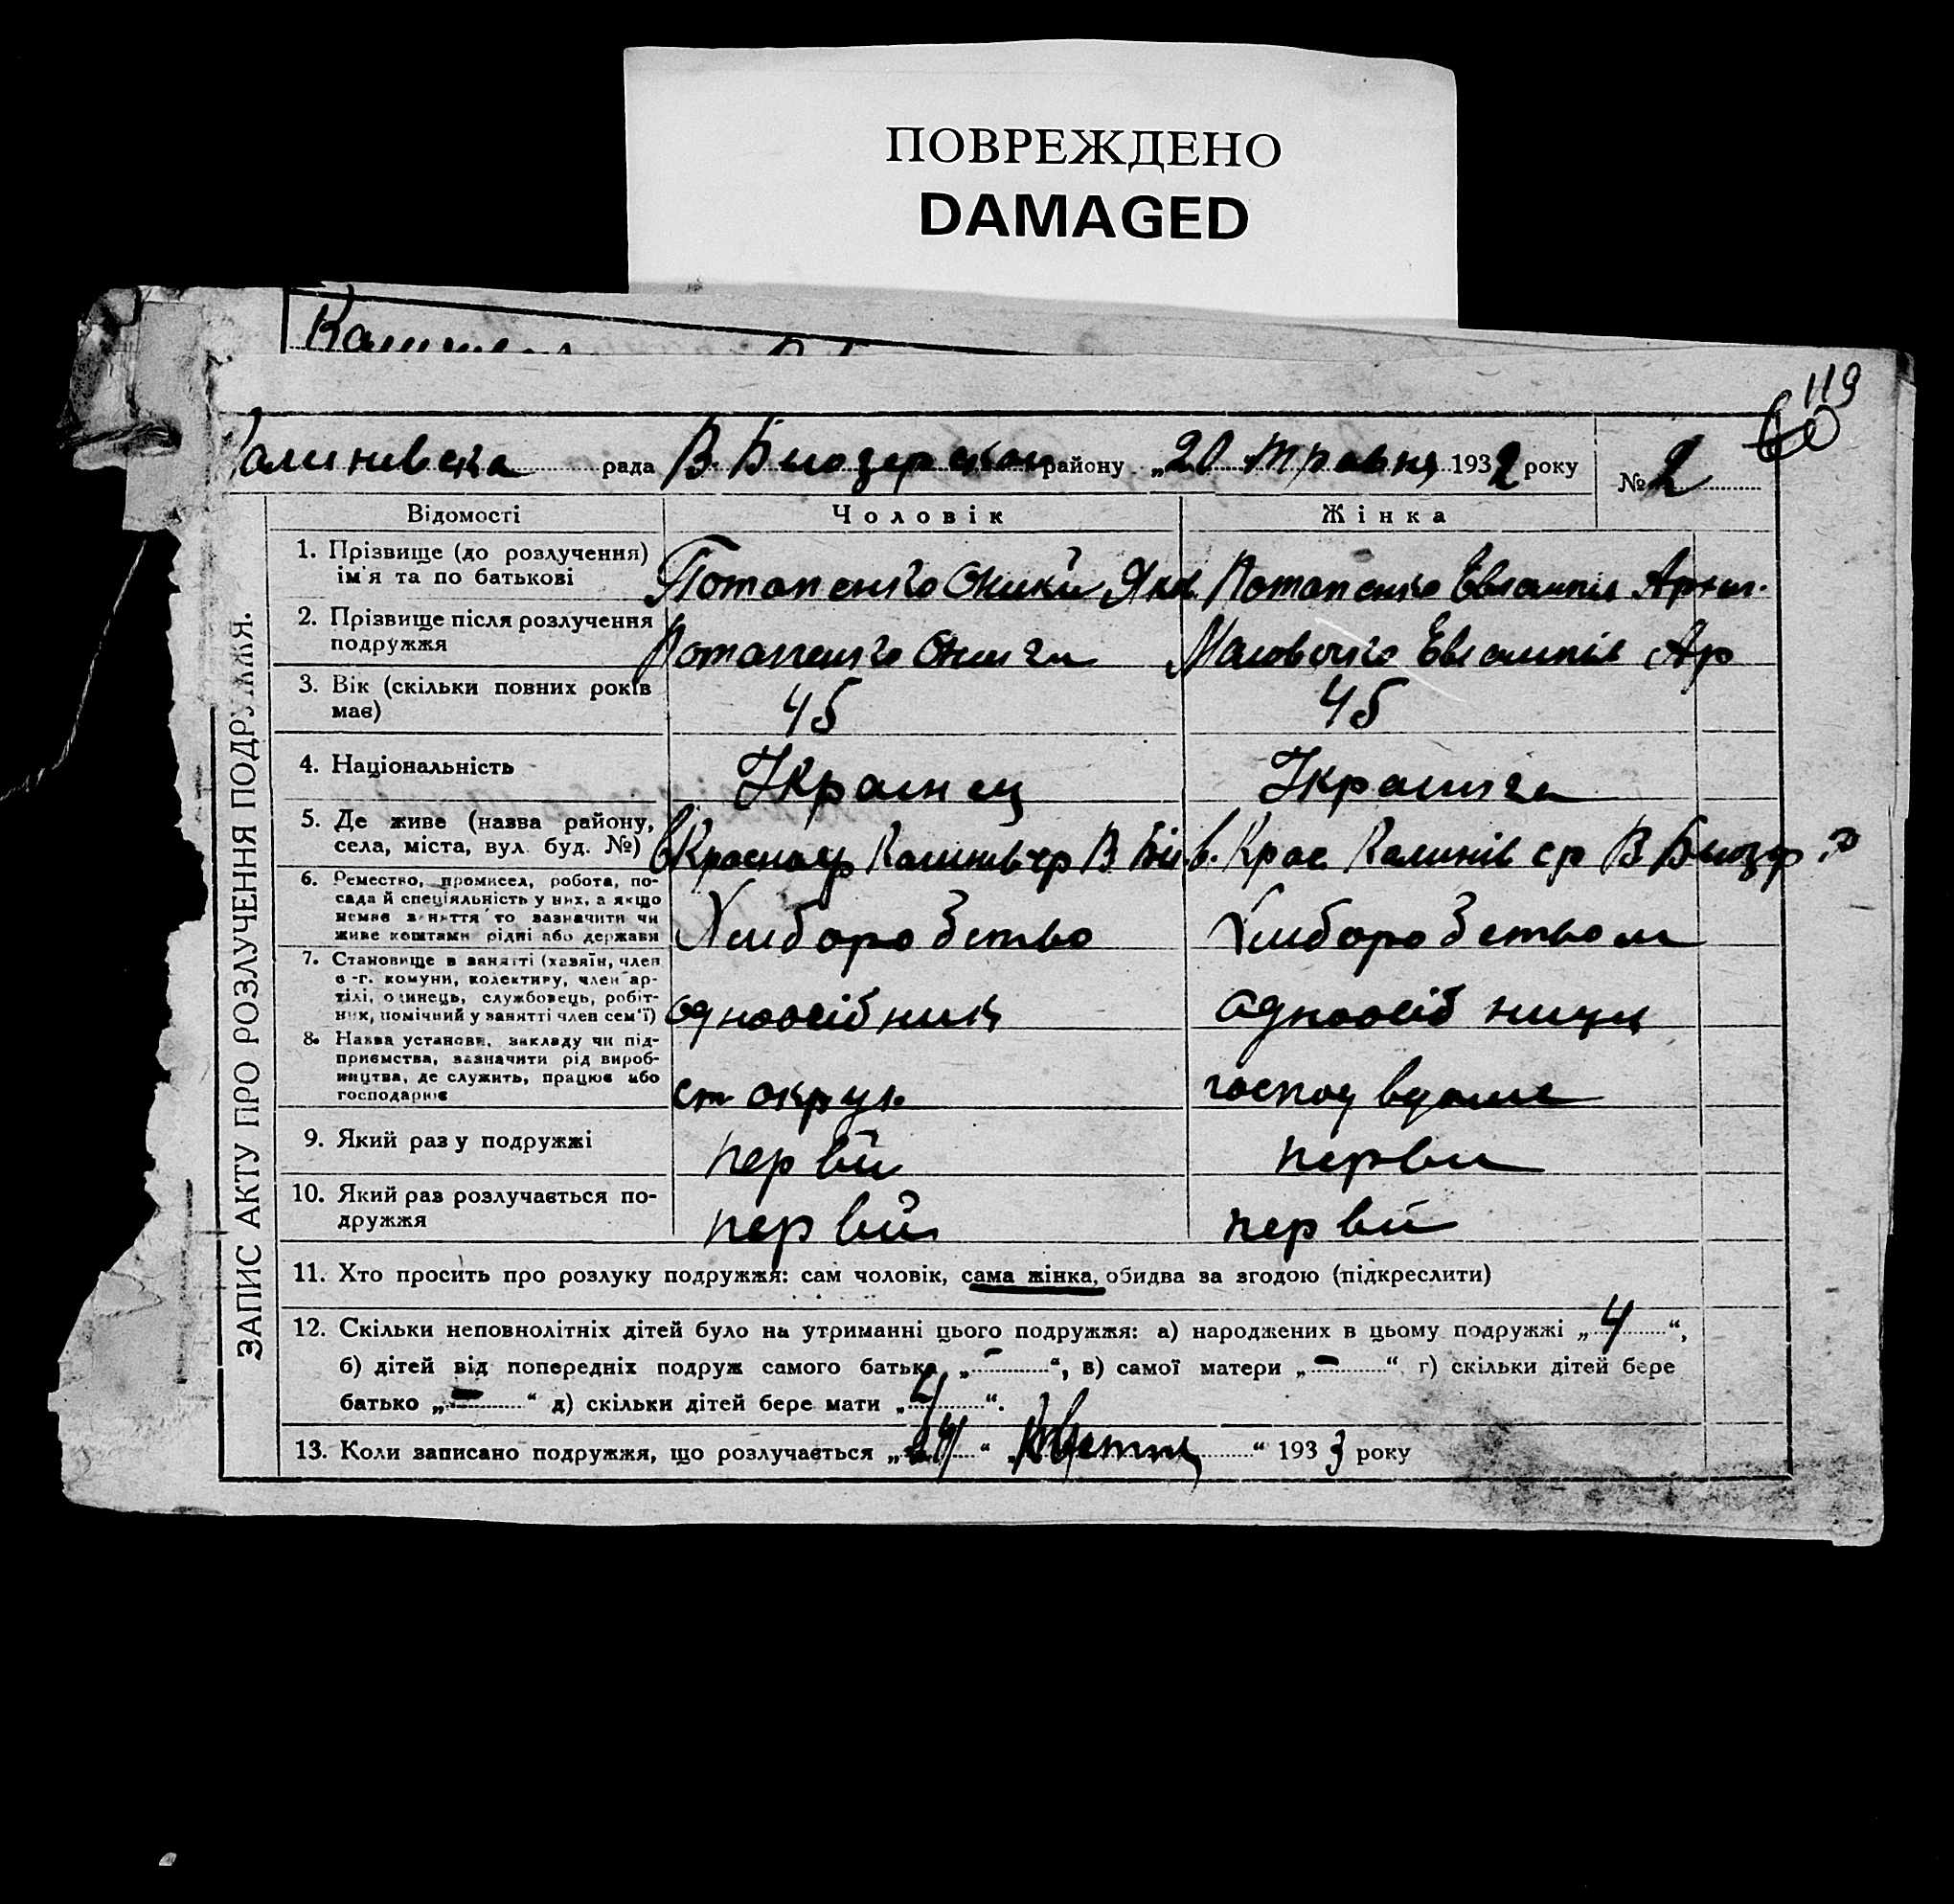 ПОВРЕЖДЕНО
DAMAGED
119
60
Калинівска рада В. Билозерском району „20 травня 1932 року №2
Відомості Чоловік Жінка
ЗАПИС АКТУ ПРО РОЗЛУЧЕННЯ ПОДРУЖЖЯ.
1. Прізвище (до розлучення) ім'я та по батькові Потапенко Оники Яків Потапенко Евлампія Архип.
2. Прізвище після розлучення подружжя Потапенко Оники Евлампія Ар
3. Вік (скільки повних років має) 45 45
4. Національність Украинец Украинка
5. Де живе (назва району, села, міста, вул. буд. №) в. Краснояр Калинів ср В Біл в. Крас Калинів ср В Билозер. р
6. Ремество, промисел, робота, посада й спеціяльність у них, а якщо немає заняття то зазначити чи живе коштами рідні або держави Хлиборобство Хлиборобством
7. Становище в занятті (хазяїн, член с.-г. комуни, колективу, член артілі, одинець, службовець, робітник, помічний у занятті член сем'ї) одноосібник одноосібниця
8. Назва установи, закладу чи підприємства, зазначити рід виробництва, де служить, працює або господарює господ вдома
9. Який раз у подружжі первий перви
10. Який раз розлучається подружжя первий первий
11. Хто просить про розлуку подружжя: сам чоловік, сама жінка, обидва за згодою (підкреслити)
12. Скільки неповнолітніх дітей було на утриманні цього подружжя: а) народжених в цьому подружжі „4“,
б) дітей від попередніх подруж самого батька „-“, в) самої матери „-“ г) скільки дітей бере
батько „-“ д) скільки дітей бере мати „4“.
13. Коли записано подружжя, що розлучається „24“ „Квітня“ 1933 року